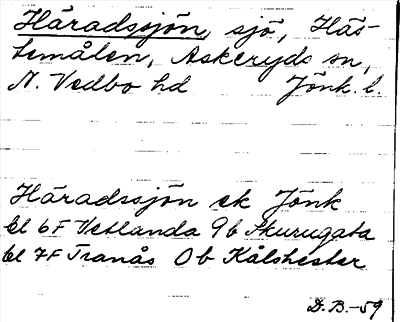 Häradssjön, sjö, Häs-
temålen, Askeryds sn,
N. Vedbo hd Jönk. l.
Häradssjön ek Jönk
bl 6F Vetlanda 9b Skurugata
bl 7F Tranås 0b Kålshester
D.B.-59